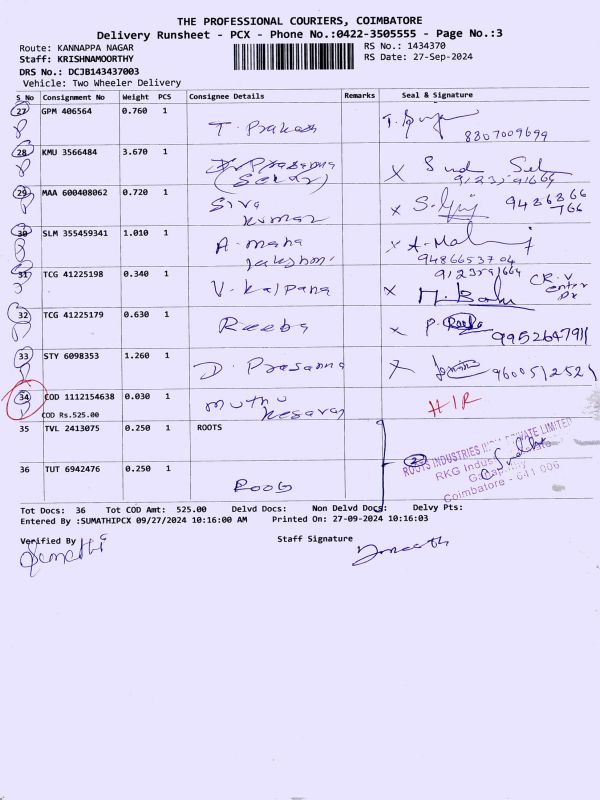 THE PROFESSIONAL COURIERS, COIMBATORE
Delivery Runsheet - PCX - Phone No.:0422-3505555 - Page No.:3
Route: KANNAPPA NAGAR
RS No.: 1434370
Staff: KRISHNAMOORTHY
RS Date: 27-Sep-2024
DRS No.: DCJB143437003
Vehicle: Two Wheeler Delivery
S No Consignment No Weight PCS Consignee Details Remarks Seal & Signature
27 GPM 406564 0.760 1
T. Prakash
8807009699
28 KMU 3566484 3.670 1
Prasanna X
29 MAA 600408062 0.720 1
Siva
Kumar X
30 SLM 355459341 1.010 1
A. maha X A. Mal
9486653704
31 TCG 41225198 0.340 1
9123591664
V. Kalpana X
32 TCG 41225179 0.630 1
Reeba X P. 9952647911
33 STY 6098353 1.260 1
D. Prasanna 9600512521
34 COD 1112154638 0.030 1
COD Rs.525.00
muthu
Kesavan
35 TVL 2413075 0.250 1 ROOTS
ROOTS INDUSTRIES INDIA PRIVATE LIMITED
RKG Indus
36 TUT 6942476 0.250 1
Coimbatore - 641 006
Tot Docs: 36 Tot COD Amt: 525.00 Delvd Docs: Non Delvd Docs: Delvy Pts:
Entered By :SUMATHIPCX 09/27/2024 10:16:00 AM Printed On: 27-09-2024 10:16:03
Verified By
Staff Signature